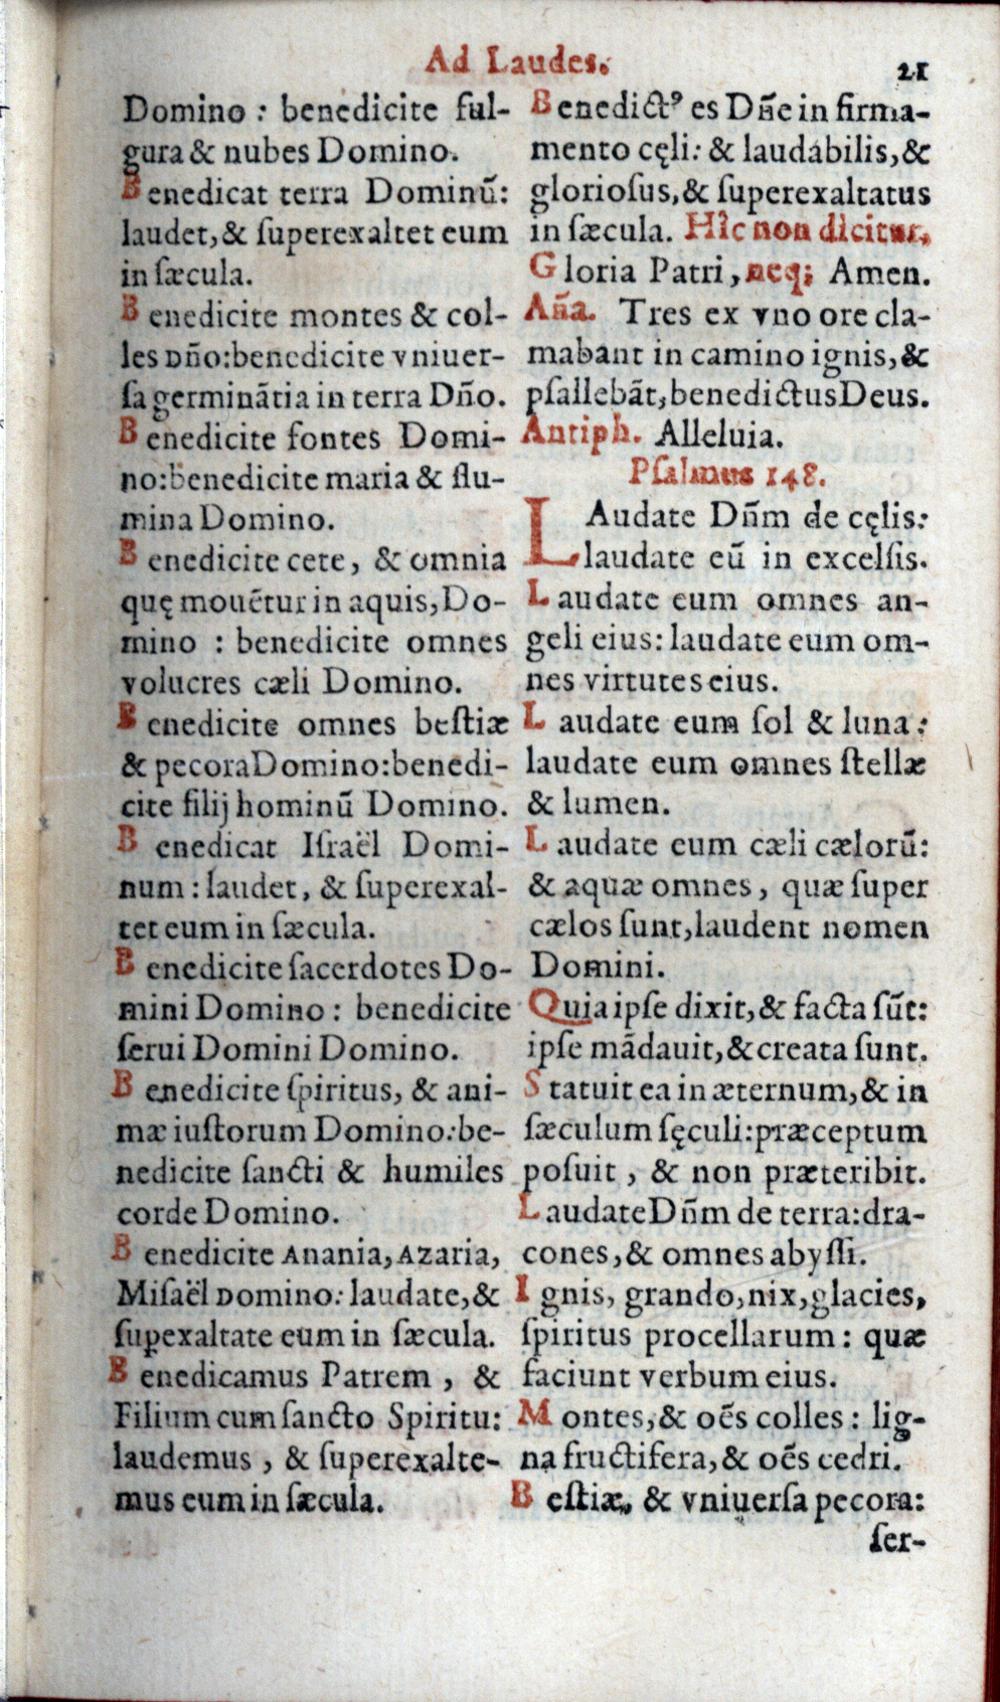 Ad Laudes.
21
Domino : benedicite ful-
gura & nubes Domino.
Benedicat terra Dominū:
laudet, & ſuperexaltet eum
in ſæcula.
Benedicite montes & col-
les Dn̄o: benedicite vniuer-
ſa germinātia in terra Dn̄o.
Benedicite fontes Domi-
no: benedicite maria & flu-
mina Domino.
Benedicite cete, & omnia
quę mouētur in aquis, Do-
mino : benedicite omnes
volucres cæli Domino.
Benedicite omnes beſtiæ
& pecora Domino: benedi-
cite filij hominū Domino.
Benedicat Iſraël Domi-
num : laudet, & ſuperexal-
tet eum in ſæcula.
Benedicite ſacerdotes Do-
mini Domino : benedicite
ſerui Domini Domino.
Benedicite ſpiritus, & ani-
mæ iuſtorum Domino: be-
nedicite ſancti & humiles
corde Domino.
Benedicite Anania, Azaria,
Miſaël Domino: laudate, &
ſuꝑexaltate eum in ſæcula.
Benedicamus Patrem , &
Filium cum ſancto Spiritu:
laudemus , & ſuperexalte-
mus eum in ſæcula.
Benedictꝰ es Dn̄e in firma-
mento cęli: & laudabilis, &
glorioſus, & ſuperexaltatus
in ſæcula. Hîc non dicitur,
Gloria Patri, neq; Amen.
Añа. Tres ex vno ore cla-
mabant in camino ignis, &
pſallebāt, benedictus Deus.
Antiph. Alleluia.
Pſalmus 148.
LAudate Dn̄m de cęlis:
laudate eū in excelſis.
Laudate eum omnes an-
geli eius: laudate eum om-
nes virtutes eius.
Laudate eum ſol & luna :
laudate eum omnes ſtellæ
& lumen.
Laudate eum cæli cælorū:
& aquæ omnes, quæ ſuper
cælos ſunt, laudent nomen
Domini.
Quia ipſe dixit, & facta ſūt:
ipſe mādauit, & creata ſunt.
Statuit ea in æternum, & in
ſæculum ſęculi: præceptum
poſuit , & non præteribit.
Laudate Dn̄m de terra: dra-
cones, & omnes abyſſi.
Ignis, grando, nix, glacies,
ſpiritus procellarum : quæ
faciunt verbum eius.
Montes, & oēs colles : lig-
na fructifera, & oēs cedri.
Beſtiæ, & vniuerſa pecora:
ſer-